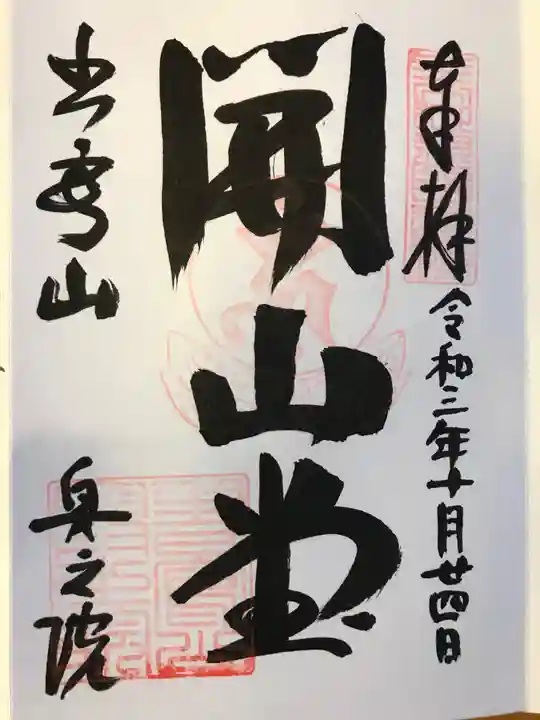 奉拝
令和三年十月廿四日
開山堂
書寫山
奥之院